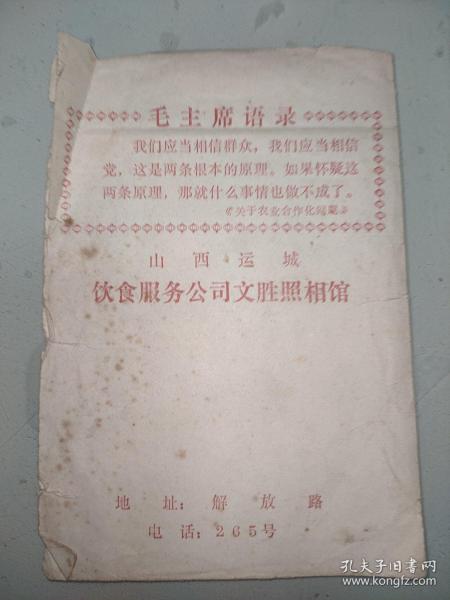 毛主席语录
我们应当相信群众，我们应当相信
党，这是两条根本的原理。如果怀疑这
两条原理，那就什么事情也做不成了。
《关于农业合作化问题》
山西运城
饮食服务公司文胜照相馆
地址：解放路
电话：265号
孔夫子旧书网
www.kongfz.com